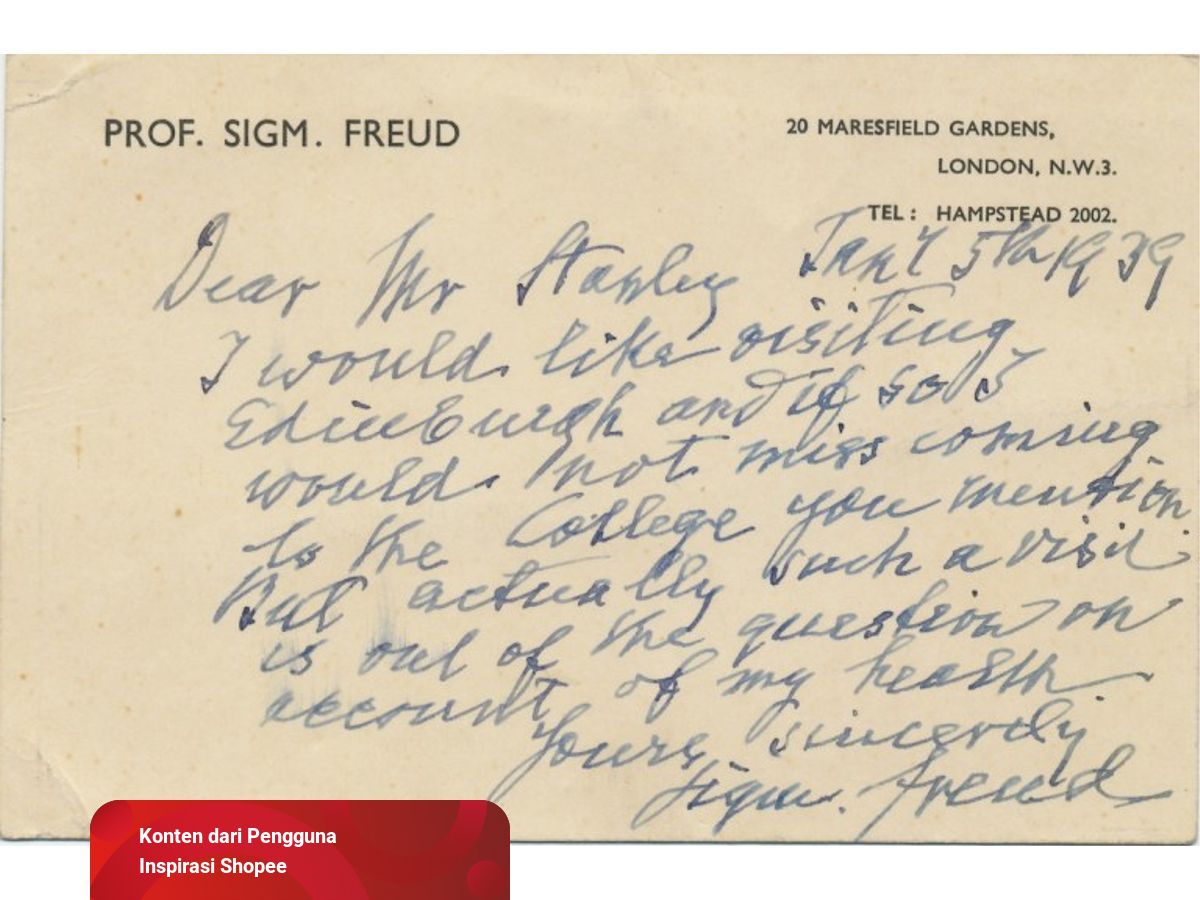 PROF. SIGM. FREUD
20 MARESFIELD GARDENS,
LONDON, N.W.3.
TEL : HAMPSTEAD 2002.
5th 1939
Dear Mr Stanley
I would like visiting
Edinburgh and if so I
would not miss coming
to the College you mention.
But actually such a visit
is out of the question on
account of my health.
Yours sincerely
Sigm. Freud
Konten dari Pengguna
Inspirasi Shopee